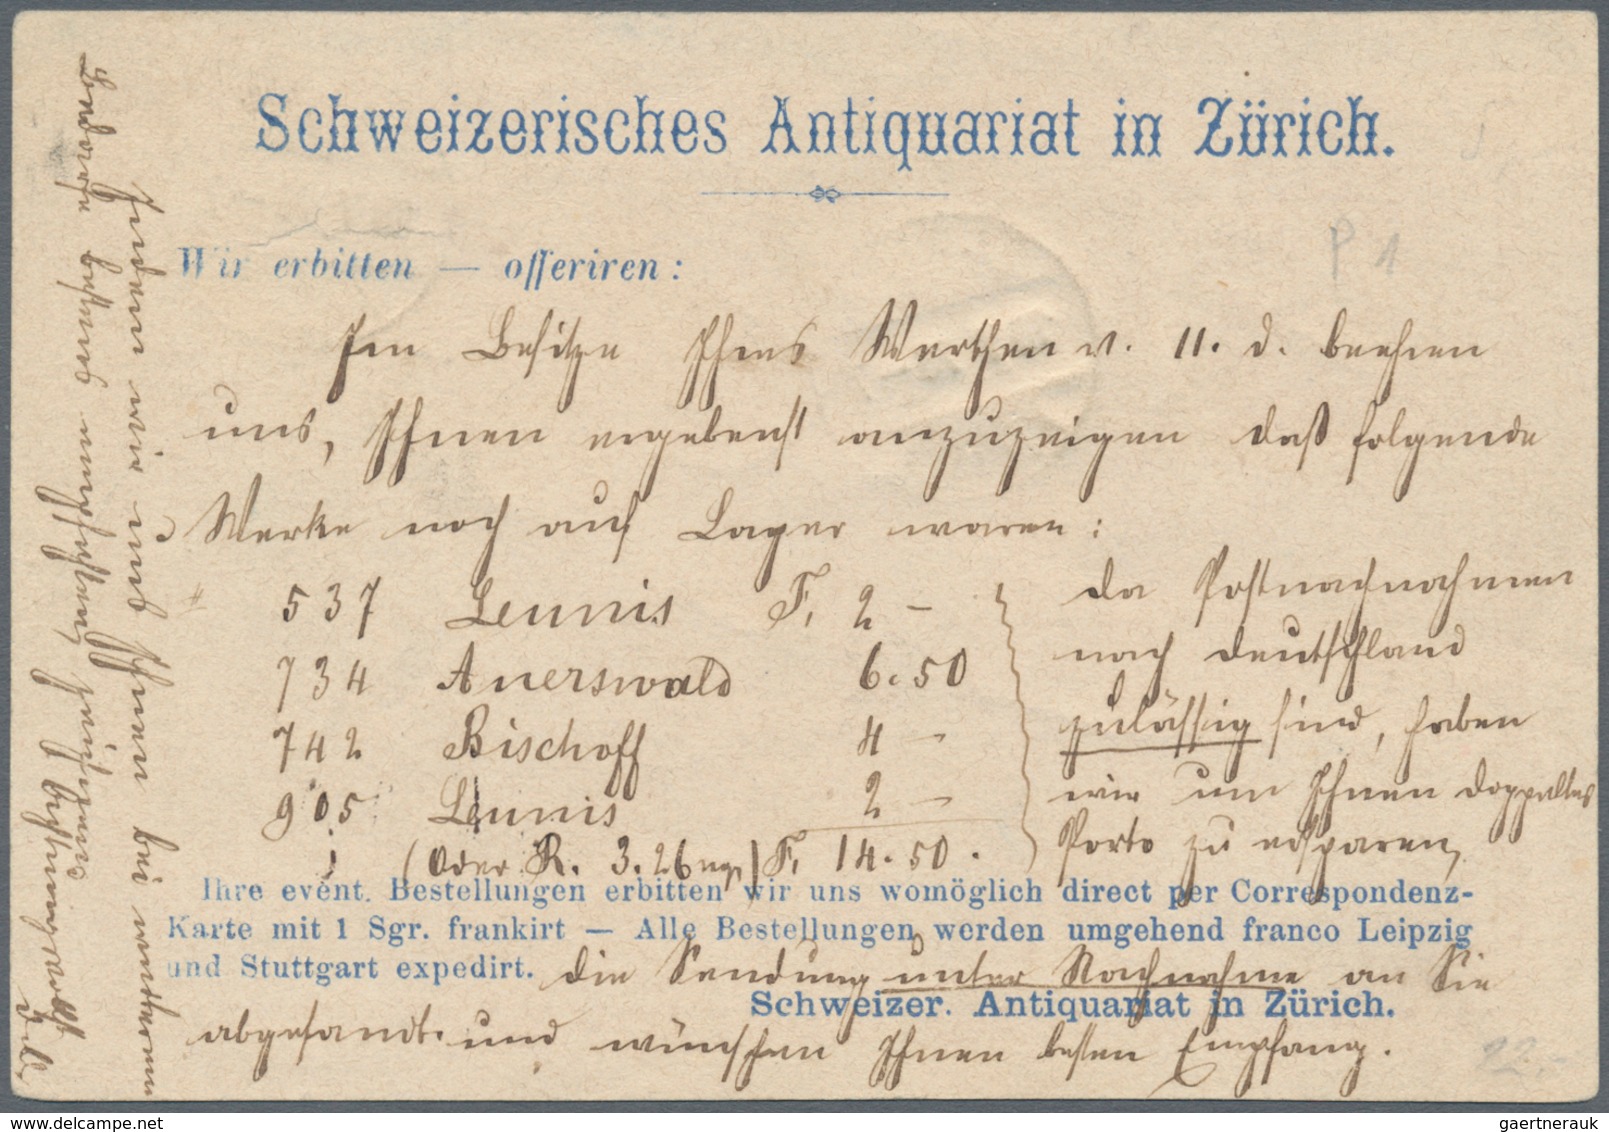 Schweizerisches Antiquariat in Zürich.
P 1
Wir erbitten — offeriren :
Im Besitze Ihres Werthen v. 11. d. beehren
uns, Ihnen ergebenst anzuzeigen daß folgende
Werke noch auf Lager waren :
537 Leunis F. 2 —
734 Auerswald 6.50
742 Bischoff 4 —
905 Leunis 2 —
(oder R. 3.26 ngr) F. 14.50.
da Postnachnahmen
nach Deutschland
zulässig sind, haben
wir um Ihnen doppeltes
Porto zu ersparen,
Ihre event. Bestellungen erbitten wir uns womöglich direct per Correspondenz-
Karte mit 1 Sgr. frankirt — Alle Bestellungen werden umgehend franco Leipzig
und Stuttgart expedirt.
die Sendung unter Nachnahme an Sie
Schweizer. Antiquariat in Zürich.
abgesandt. und wünschen Ihnen besten Empfang.
22.-
Indem wir uns Ihnen bei weiterem
Bedarfe bestens empfohlen
gaertnerauk